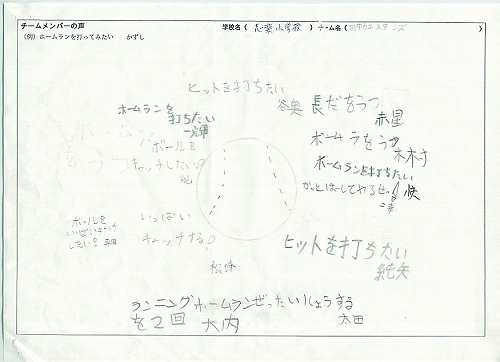 チームメンバーの声
学校名( 志楽小学校 ) チーム名( 田中ウエスターンズ )
(例) ホームランを打ってみたい かずし
ヒットを打ちたい
ホームランを
打ちたい
一輝
長だをうつ
赤星
ホームランをうつ
木村
ボールを
キャッチしたい。
ホームランを打ちたい
かっとばしてやるぜ!
ボールを
いっぱいキャッチ
したい?
いっぱい
キャッチする!
ヒットを打ちたい
純矢
ランニングホームランぜったいしょうする
を2回 大内
太田